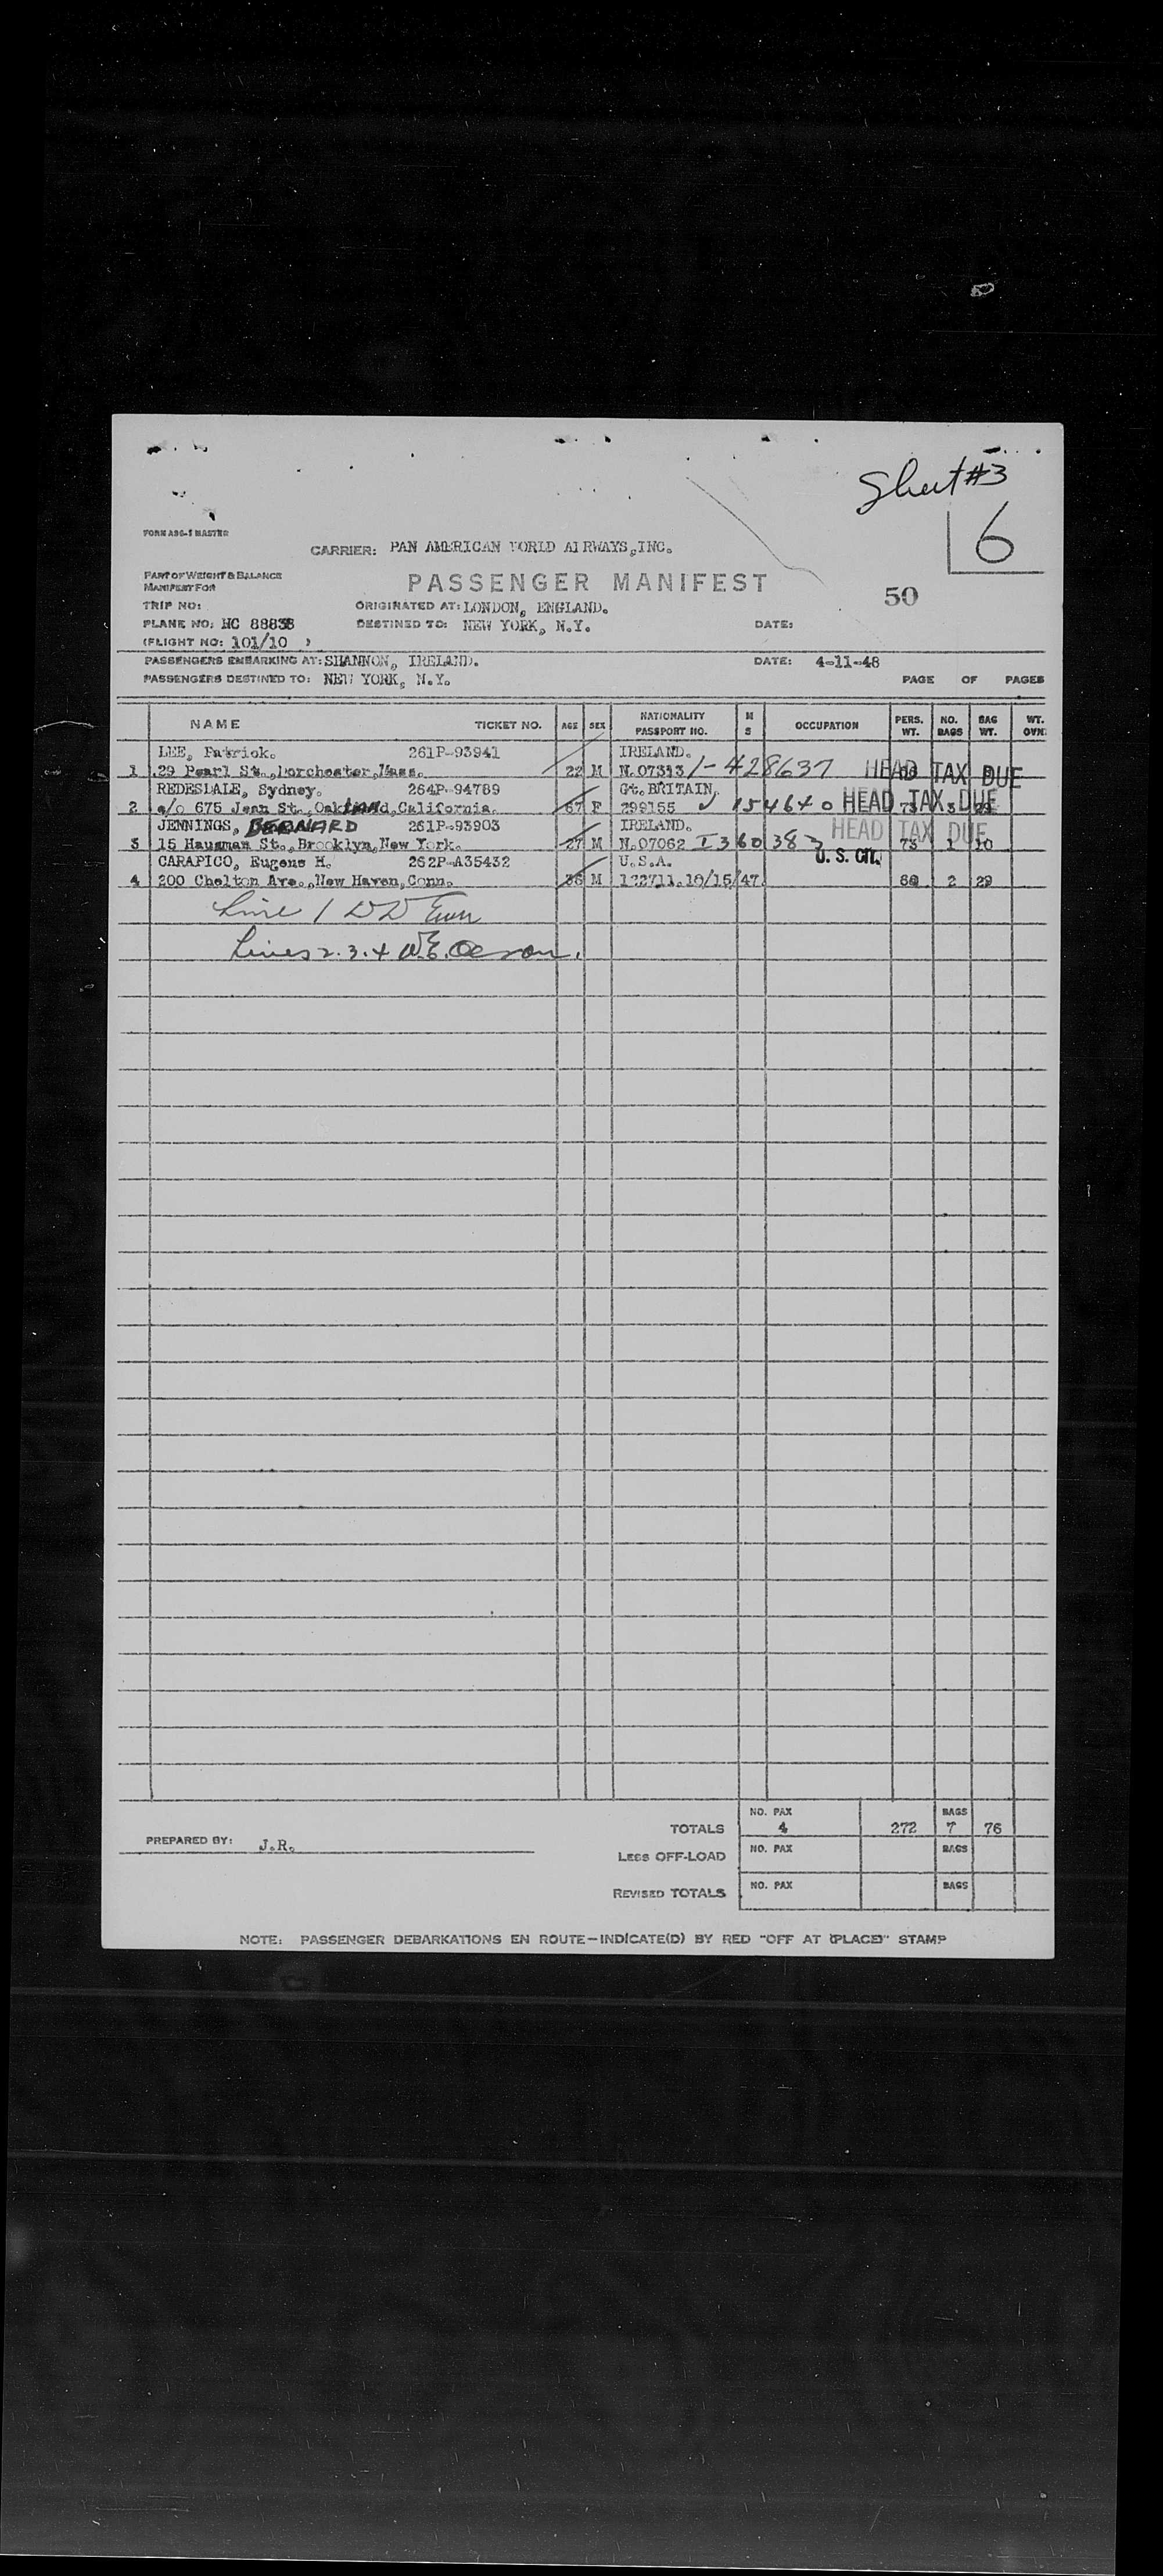 Sheet #3
6
FORM ABG-1 MASTER
CARRIER: PAN AMERICAN WORLD AIRWAYS,INC.
PART OF WEIGHT & BALANCE
MANIFEST FOR
PASSENGER MANIFEST
50
TRIP NO:
ORIGINATED AT: LONDON, ENGLAND.
PLANE NO: NC 88838
DESTINED TO: NEW YORK, N.Y.
DATE:
(FLIGHT NO: 101/10 )
PASSENGERS EMBARKING AT: SHANNON, IRELAND.
DATE: 4-11-48
PASSENGERS DESTINED TO: NEW YORK, N.Y.
PAGE OF PAGES
NAME TICKET NO. AGE SEX NATIONALITY PASSPORT NO. M S OCCUPATION PERS. WT. NO. BAGS BAG WT. WT. OVN:
LEE, Patrick. 261P-93941 IRELAND.
1 29 Pearl St.,Dorchester,Mass. 22 M N.07313 1-428637 HEAD TAX DUE
REDESDALE, Sydney. 264P-94789 Gt.BRITAIN.
2 c/o 675 Jean St., Oakland,California. 67 F 299155 154640 HEAD TAX DUE 73 3
JENNINGS, BERNARD 261P-93903 IRELAND. HEAD TAX DUE
3 15 Hausman St.,Brooklyn,New York. 27 M N.07062 I360383 73 1 10
CARAPICO, Eugene H. 262P-A35432 U.S.A. U. S. CIT.
4 200 Chelton Ave.,New Haven,Conn. M 122711.10/15/47. 2 29
Line 1 DD
Lines 2.3.4 W.E.
TOTALS NO. PAX 4 272 BAGS 7 76
PREPARED BY: J.R.
LESS OFF-LOAD NO. PAX BAGS
REVISED TOTALS NO. PAX BAGS
NOTE: PASSENGER DEBARKATIONS EN ROUTE—INDICATE(D) BY RED "OFF AT (PLACE)" STAMP